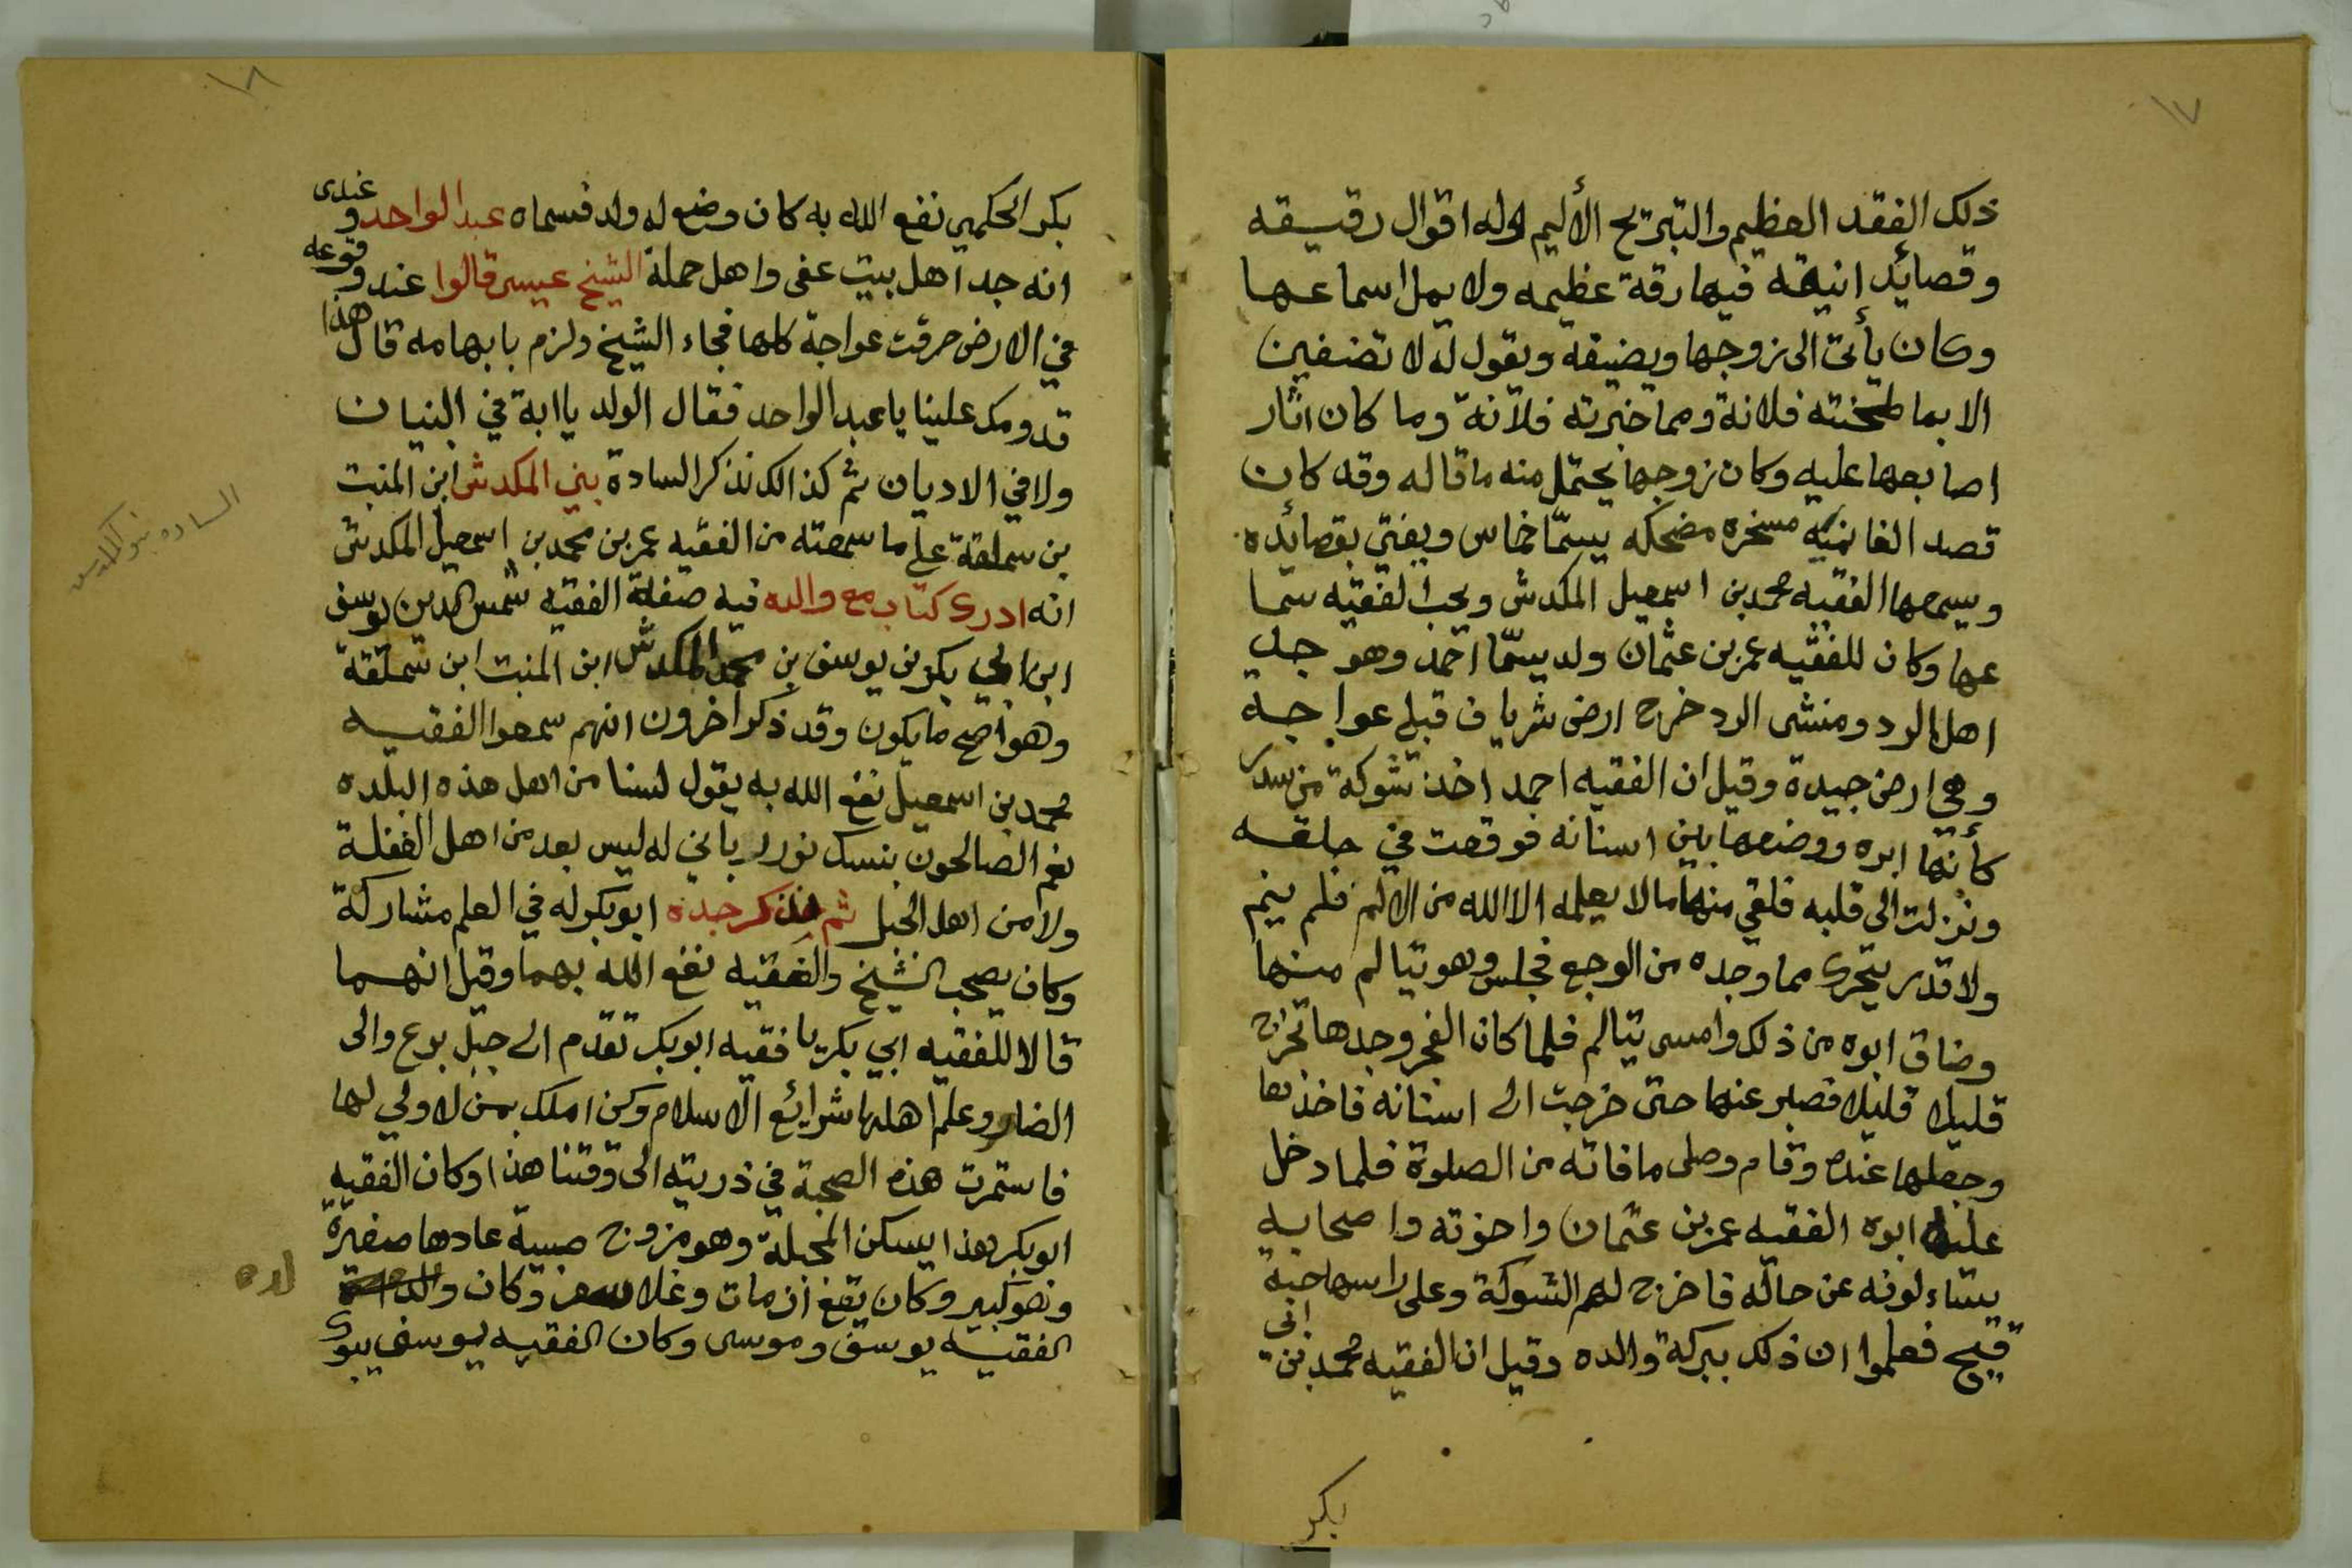 ١٧
ذلك الفقد العظيم والتبريح الأليم وله اقوال رقيقه
وقصائد انيقه فيها رقة عظيمه ولا يمل اسماعها
وكان يأتي الى زوجها ويضيفه ويقول له لا تضيفين
الا بما طحنته فلانة ومما خبزته فلانة وما كان اثار
اصابعها عليه وكان زوجها يحتمل منه ما قاله وقد كان
قصد الغانميه مسخره مضحكه يسمّا خماس ويغني بقصائده
ويسمعها الفقيه محمد بن اسمعيل المكدش ويحب الفقيه سما
عها وكان للفقيه عمر بن عثمان ولد يسمّا احمد وهو جد
اهل الرد ومنشى الرد خرج ارض شرياف قبلي عواجة
وهي ارض جيدة وقيل ان الفقيه احمد اخذ شوكة من سدر
كأنها ابره ووضعها بين اسنانه فوقعت في حلقه
ونزلت الى قلبه فلقي منها ما لا يعلمه الا الله من الالم فلم ينم
ولا قدر يتحرى مما وجده من الوجع فجلس وهو يتالم منها
وضاق ابوه من ذلك وامسى يتالم فلما كان الفجر وجدها تخرج
قليلا قليلا فصبر عنها حتى خرجت الى اسنانه فاخذها
وجعلها عنده وقام وصلى ما فاته من الصلوة فلما دخل
عليه ابوه الفقيه عمر بن عثمان واخوته واصحابه
يتساءلونه عن حاله فاخرج لهم الشوكة وعلى راسها حبة
قيح فعلموا ان ذلك ببركة والده وقيل ان الفقيه محمد بن ابي
بكر
١٨
بكر الحكمي نفع الله به كان وضع له ولد فسماه عبد الواحد وعندى
انه جد اهل بيت عفى واهل حملة الشيخ عيسى قالوا عند وقوعه
في الارض حرقت عواجة كلها فجاء الشيخ ولزم بابهامه قال هذا
قدومك علينا يا عبد الواحد فقال الولد يا ابة في البنيان
ولا في الاديان ثم كذالك نذكر السادة بني المكدش ابن المنبت
بن سملقة على ما سمعته من الفقيه عمر بن محمد بن اسمعيل المكدش
السادة بنو المكدش
انه ادرى كتاب مع والده فيه صفة الفقيه شمس الدين يوسف
ابن ابي بكر بن يوسف بن محمد المكدش ابن المنبت ابن سملقة
وهو اصح ما يكون وقد ذكر اخرون انهم سمعوا الفقيه
محمد بن اسمعيل نفع الله به يقول لسنا من اهل هذه البلده
نعم الصالحون بنسك نور رباني له ليس بعد من اهل الغفلة
ولا من اهل الجبل ثم نذكر جده ابو بكر له في العلم مشاركة
وكان يصحب الشيخ والفقيه نفع الله بهما وقيل انهما
قالا للفقيه ابي بكر يا فقيه ابو بكر تقدم الى جبل برع والى
الضار وعلم اهلها شرائع الاسلام وكن املك بمن لا ولي لها
فاستمرت هذه الصحبة في ذريته الى وقتنا هذا وكان الفقيه
ابو بكر هذا يسكن المخبلة وهو مزوج صبية عادها صغيرة
وهو كبير وكان تقع ازمات وغلا سعر وكان
الفقيه يوسف وموسى وكان الفقيه يوسف يبوى